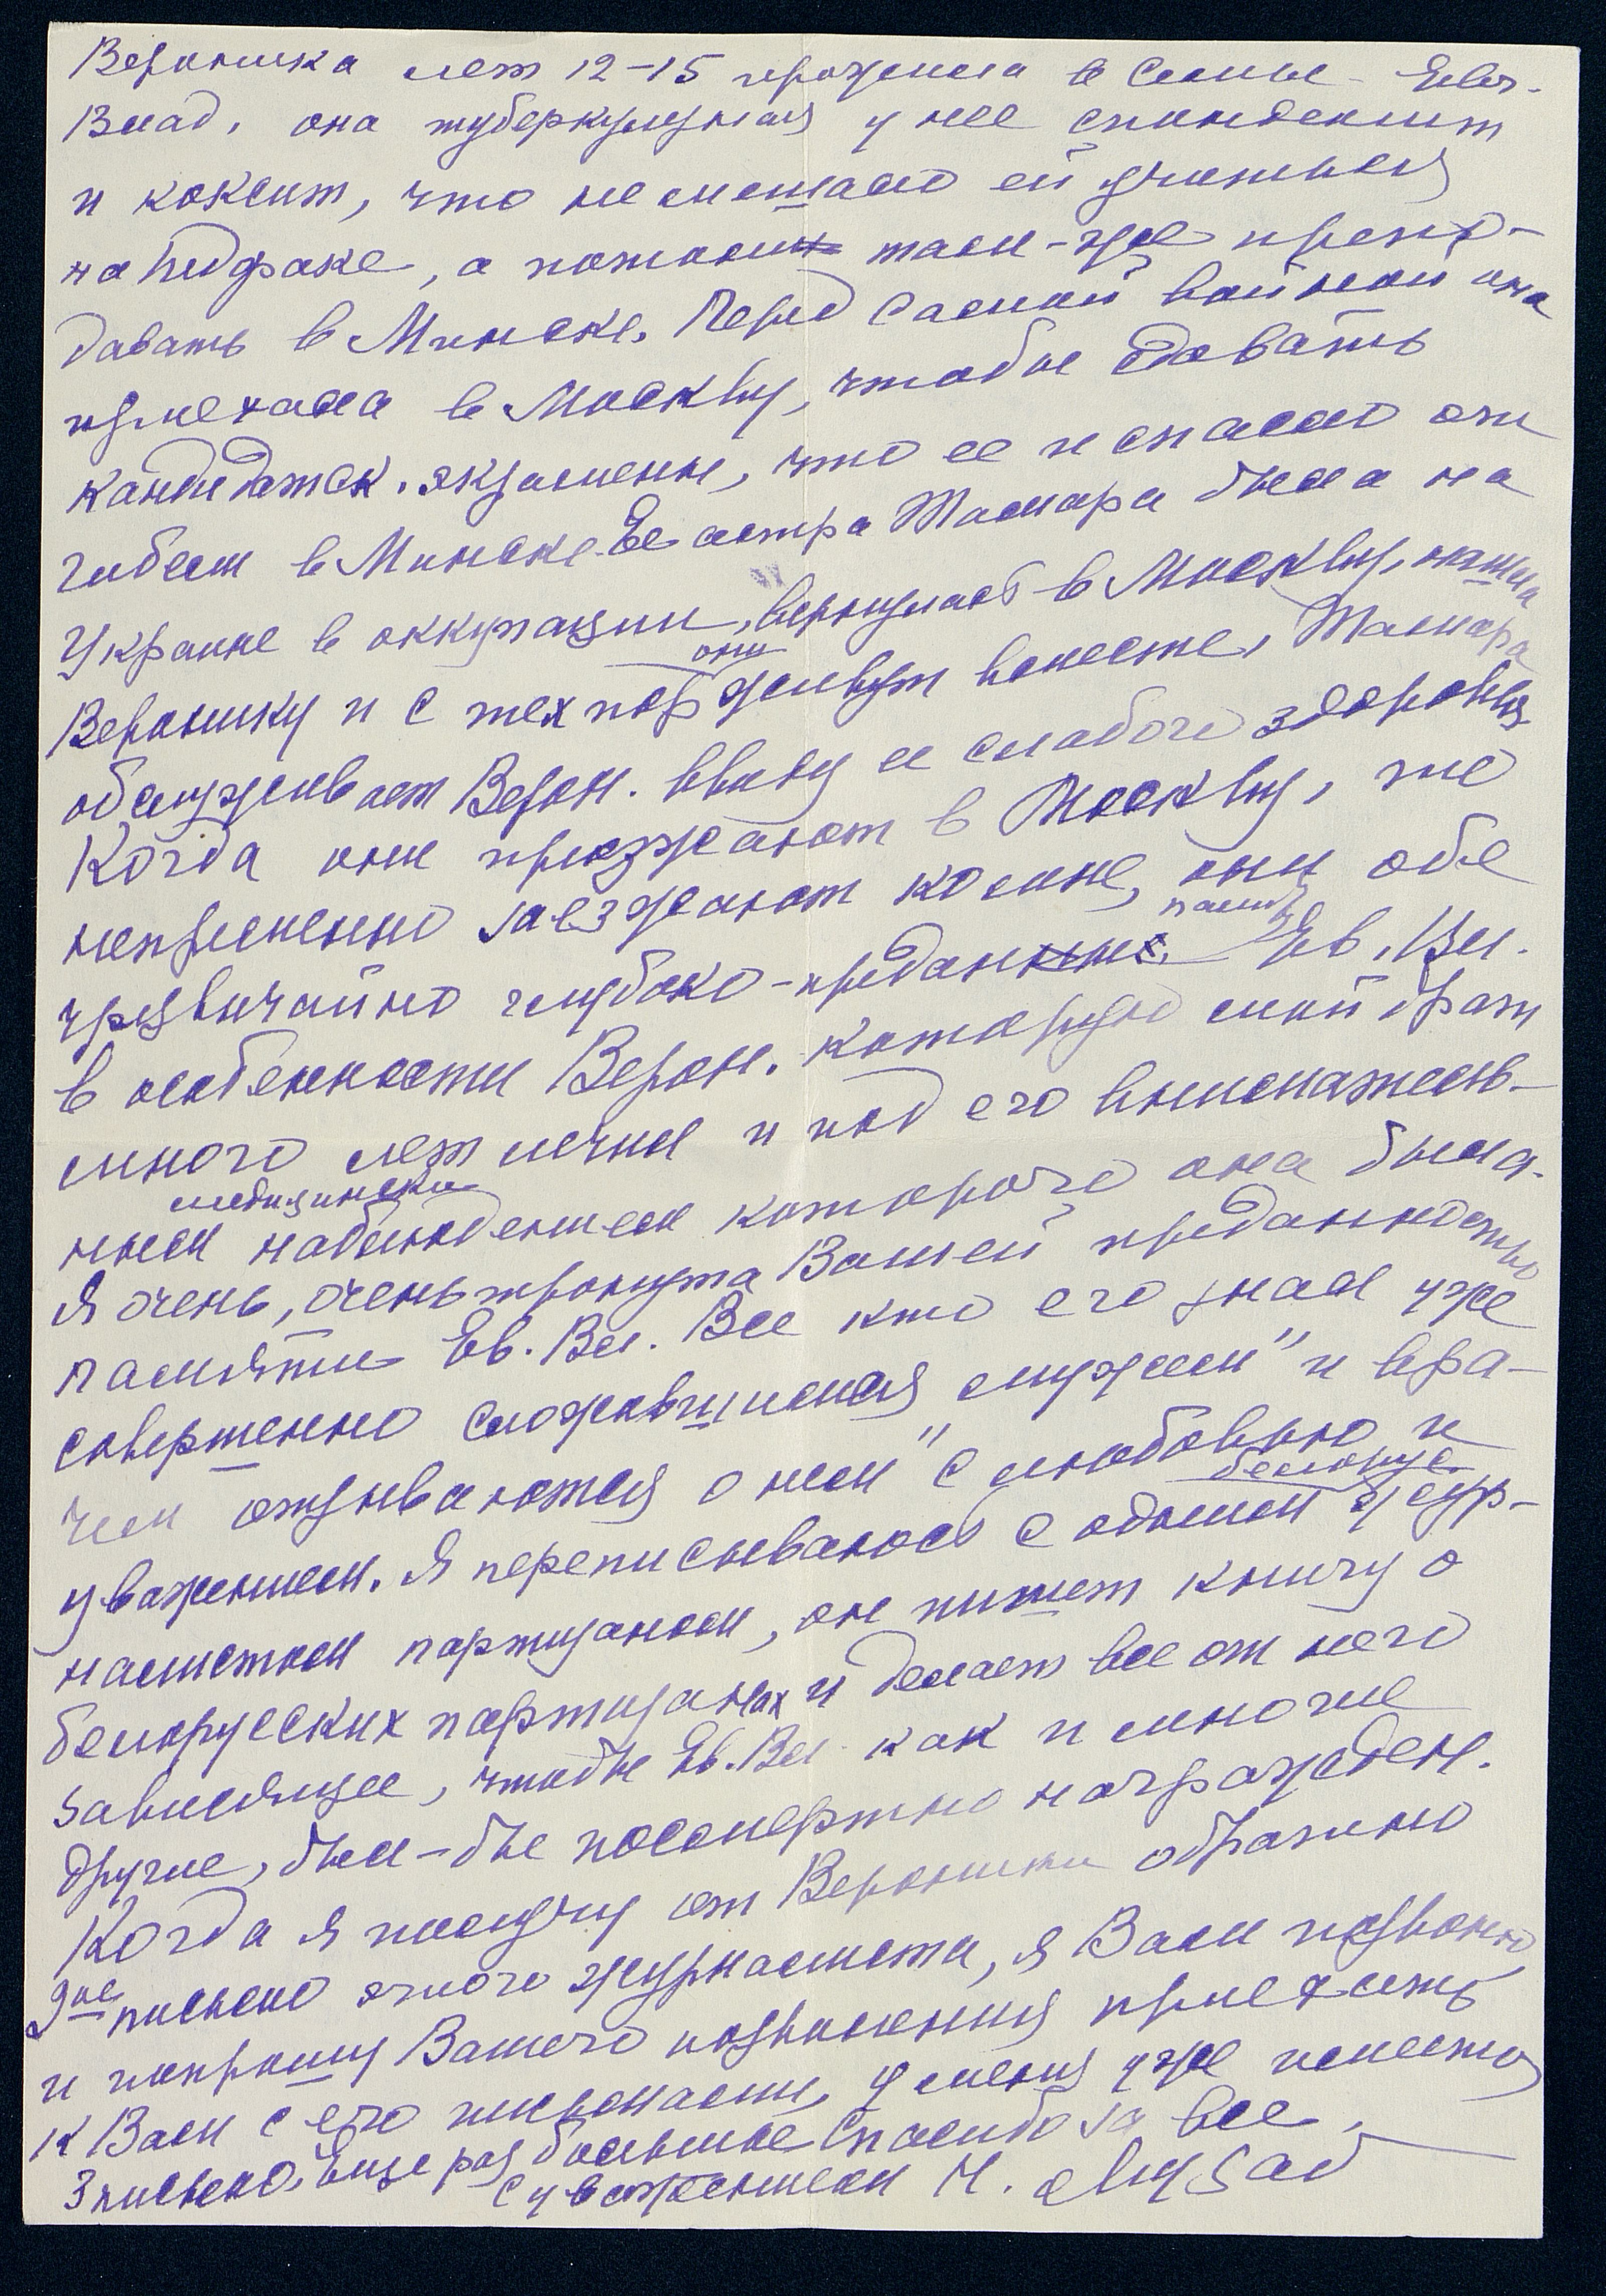 Вероника лет 12-15 прожила в семье Евг.
Влад., она туберкулезная у нее спондилит
и коксит, что не мешало ей учиться
на педфаке, а потом там-же препо-
давать в Минске. Перед самой войной она
приехала в Москву, чтобы сдавать
кандидатск. экзамены, что ее и спасло от
гибели в Минске. Ее сестра Тамара была на
Украине в оккупации, вернулась в Москву, нашла
Веронику и с тех пор они живут вместе, Тамара
обслуживает Верон. ввиду ее слабого здоровья
Когда они приезжают в Москву, то
непременно заезжают ко мне, они обе
чрезвычайно глубоко-преданы памяти Ев. Вл.
в особенности Верон. которую мой брат
много лет лечил и под его внимательн-
ным медицинским наблюдением которого она была.
Я очень, очень тронута Вашей преданностью
памяти Ев. Вл. Все кто его знал уже
совершенно сложившимся „мужем" и вра-
чем отзываются о нем с любовью и
уважением. Я переписываюсь с одним белорус. жур-
налистом партизаном, он пишет книгу о
белорусских партизанах и делает все от него
зависящее, чтобы Ев. Вл. как и многие
другие, был-бы посмертно награжден.
Когда я получу от Вероники обратно
2ое письмо этого журналиста, я Вам позвоню
и попрошу Вашего позволения приехать
к Вам с его письмами, у меня уже имеется
3 письма. Еще раз большое спасибо за все.
С уважением Н. Музал